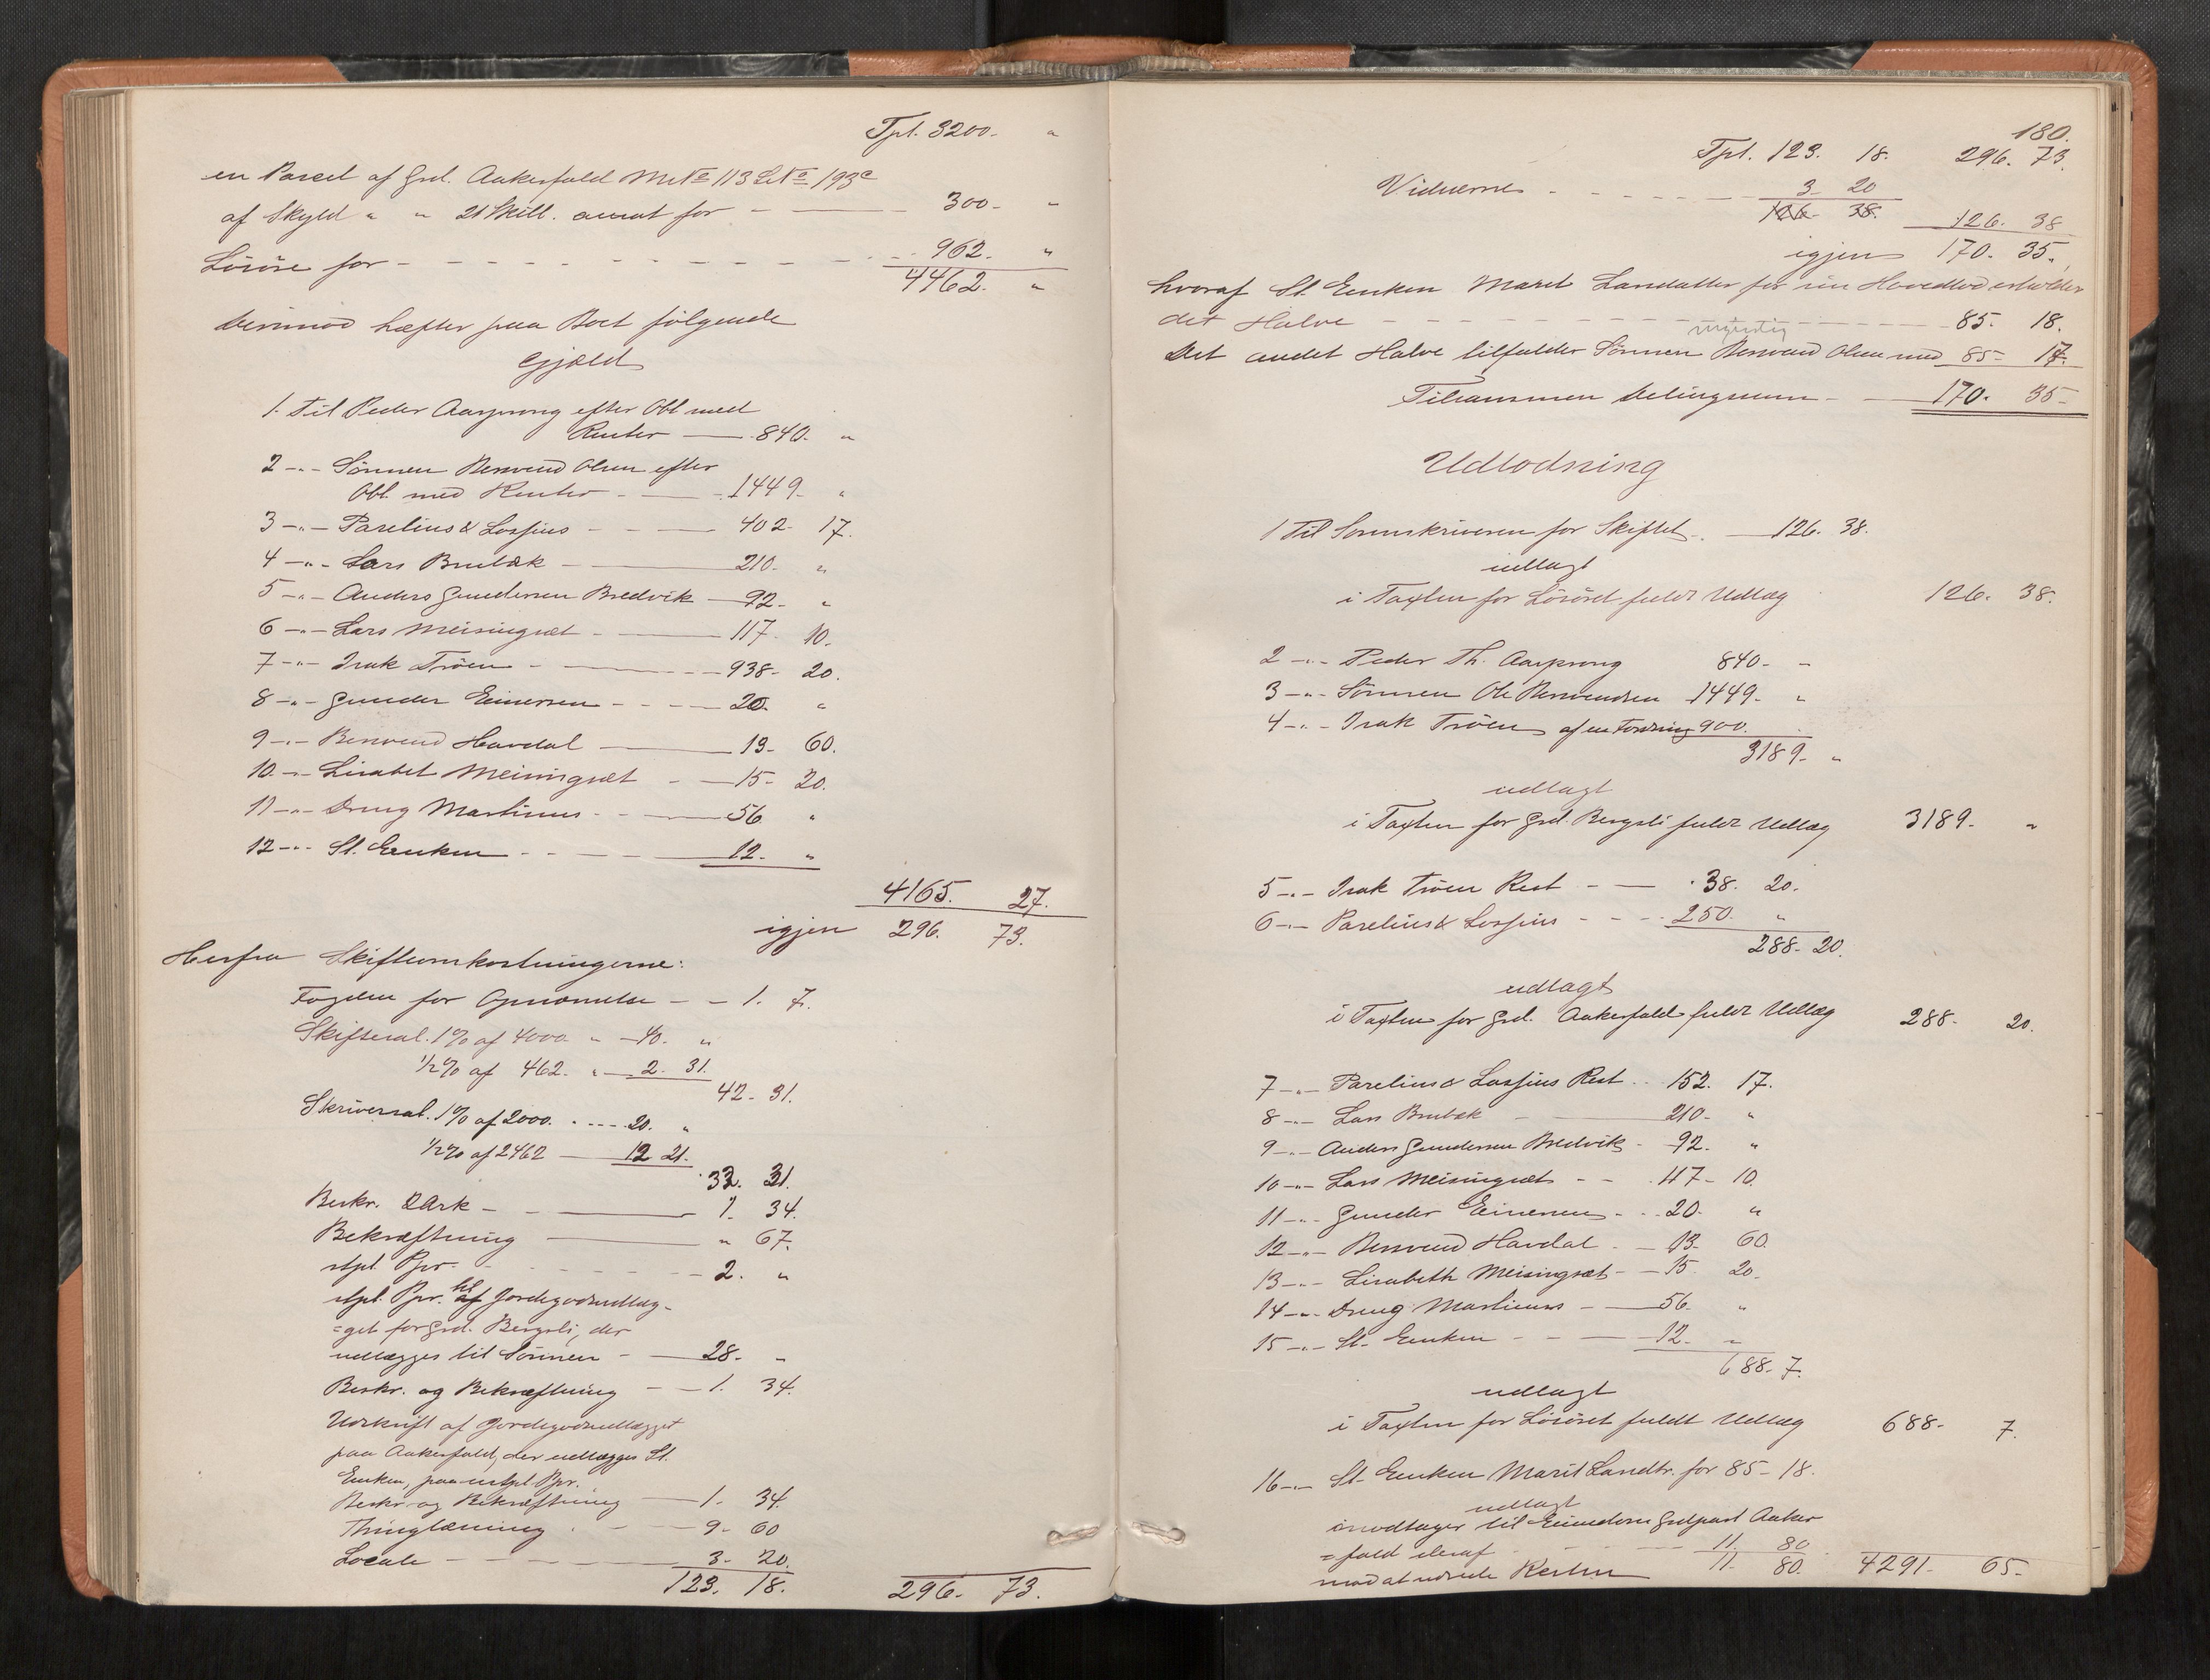 Tpt. 3200. "
en Parcel af Grd. Aakerfald M.No 113 L.No 193c
af Skyld " " 21 Skill. ansat for — 300. "
Løsøre for - - - 962. "
4462. "
Derimod hæfter paa Boet følgende
Gjæld
1. Til Peder Aarsprong efter Obl med
Renter — 840. "
2 -"- Sønnen Bersvend Olsen efter
Obl. med Renter - — 1449. "
3 -"- Parelius & Lossius - - — 402. 17.
4 -"- Lars Brubæk — 210. "
5 -"- Anders Gundersen Bredvik — 92. "
6 -"- Lars Meisingset - — 117. 10.
7 -"- Isak Trøen - — 938. 20.
8 -"- Gunder Einersen - - - 20. "
9 -"- Bersvend Havdal — 13. 60.
10 -"- Lisabet Meisingset - — 15. 20.
11 -"- Dreng Martinus - - — 56. "
12 -"- St. Enken - - — 12. "
4165. 27.
igjen 296. 73.
Herfra Skifteomkostningerne:
Fogden for Opnævnelse - - 1. 7.
Skiftesal. 1% af 4000. " — 40. "
1/2% af 462. " — 2. 31.
42. 31.
Skriversal. 1% af 2000. - - - 20. "
1/2% af 2462 — 12 21.
32. 31.
Beskr. 2 Ark - — 1. 34.
Bekræftning — " 67.
stpl. Ppr. - - - 2. "
stpl. Ppr. til Jordegodsudlæg-
=get for Grd. Bergsli, der
udlægges til Sønnen - — 28. "
Beskr. og Bekræftning - — 1. 34.
Udskrift af Jordegodsudlægget
paa Aakerfald, der udlægges St.
Enken, paa ustpl. Ppr.
Beskr. og Bekræftning — 1. 34.
Thinglæsning - — 9. 60
Locale - — 3. 20.
123. 18.
296. 73.
180.
Tpt. 123. 18. 296. 73.
Vidnerne - - - 3 20
126. 38. 126. 38
igjen 170. 35.
hvoraf St. Enken Marit Larsdatter for sin Hovedlod erholder
det Halve - - - 85. 18.
myndig
Det andet Halve tilfalder Sønnen Bersvend Olsen med 85. 17.
Tilsammen Delingssum - — 170. 35
Udlodning
1 Til Sorenskriveren for Skiftet - — 126. 38.
udlagt
i Taxten for Løsøret fuldt Udlæg 126. 38.
2 -"- Peder Th. Aarsprong 840. "
3 -"- Sønnen Ole Bersvendsen 1449. "
4 -"- Isak Trøen af en Fordring 900.
3189. "
udlagt
i Taxten for Grd. Bergsli fuldt Udlæg 3189. "
5 -"- Isak Trøen Rest - — 38. 20.
6 -"- Parelius & Lossius - - - 250. "
288. 20.
udlagt
i Taxten for Grd. Aakerfald fuldt Udlæg 288. 20.
7 -"- Parelius & Lossius Rest - - 152. 17.
8 -"- Lars Brubæk - — 210. "
9 -"- Anders Gundersen Bredvik - 92. "
10 -"- Lars Meisingset - - 117. 10.
11 -"- Gunder Einersen - - 20. "
12 -"- Bersvend Havdal - - 13. 60.
13 -"- Lisabeth Meisingset - 15. 20.
14 -"- Dreng Martinus - — 56. "
15 -"- St. Enken - - — 12. "
688. 7.
udlagt
i Taxten for Løsøret fuldt Udlæg 688. 7.
16 -"- St. Enken Marit Larsdtr. for 85. 18.
udlagt
modtager til Eiendom Grdpart Aaker
=fald deraf - - - 11. 80
mod at udrede Resten 11. 80. 4291. 65.